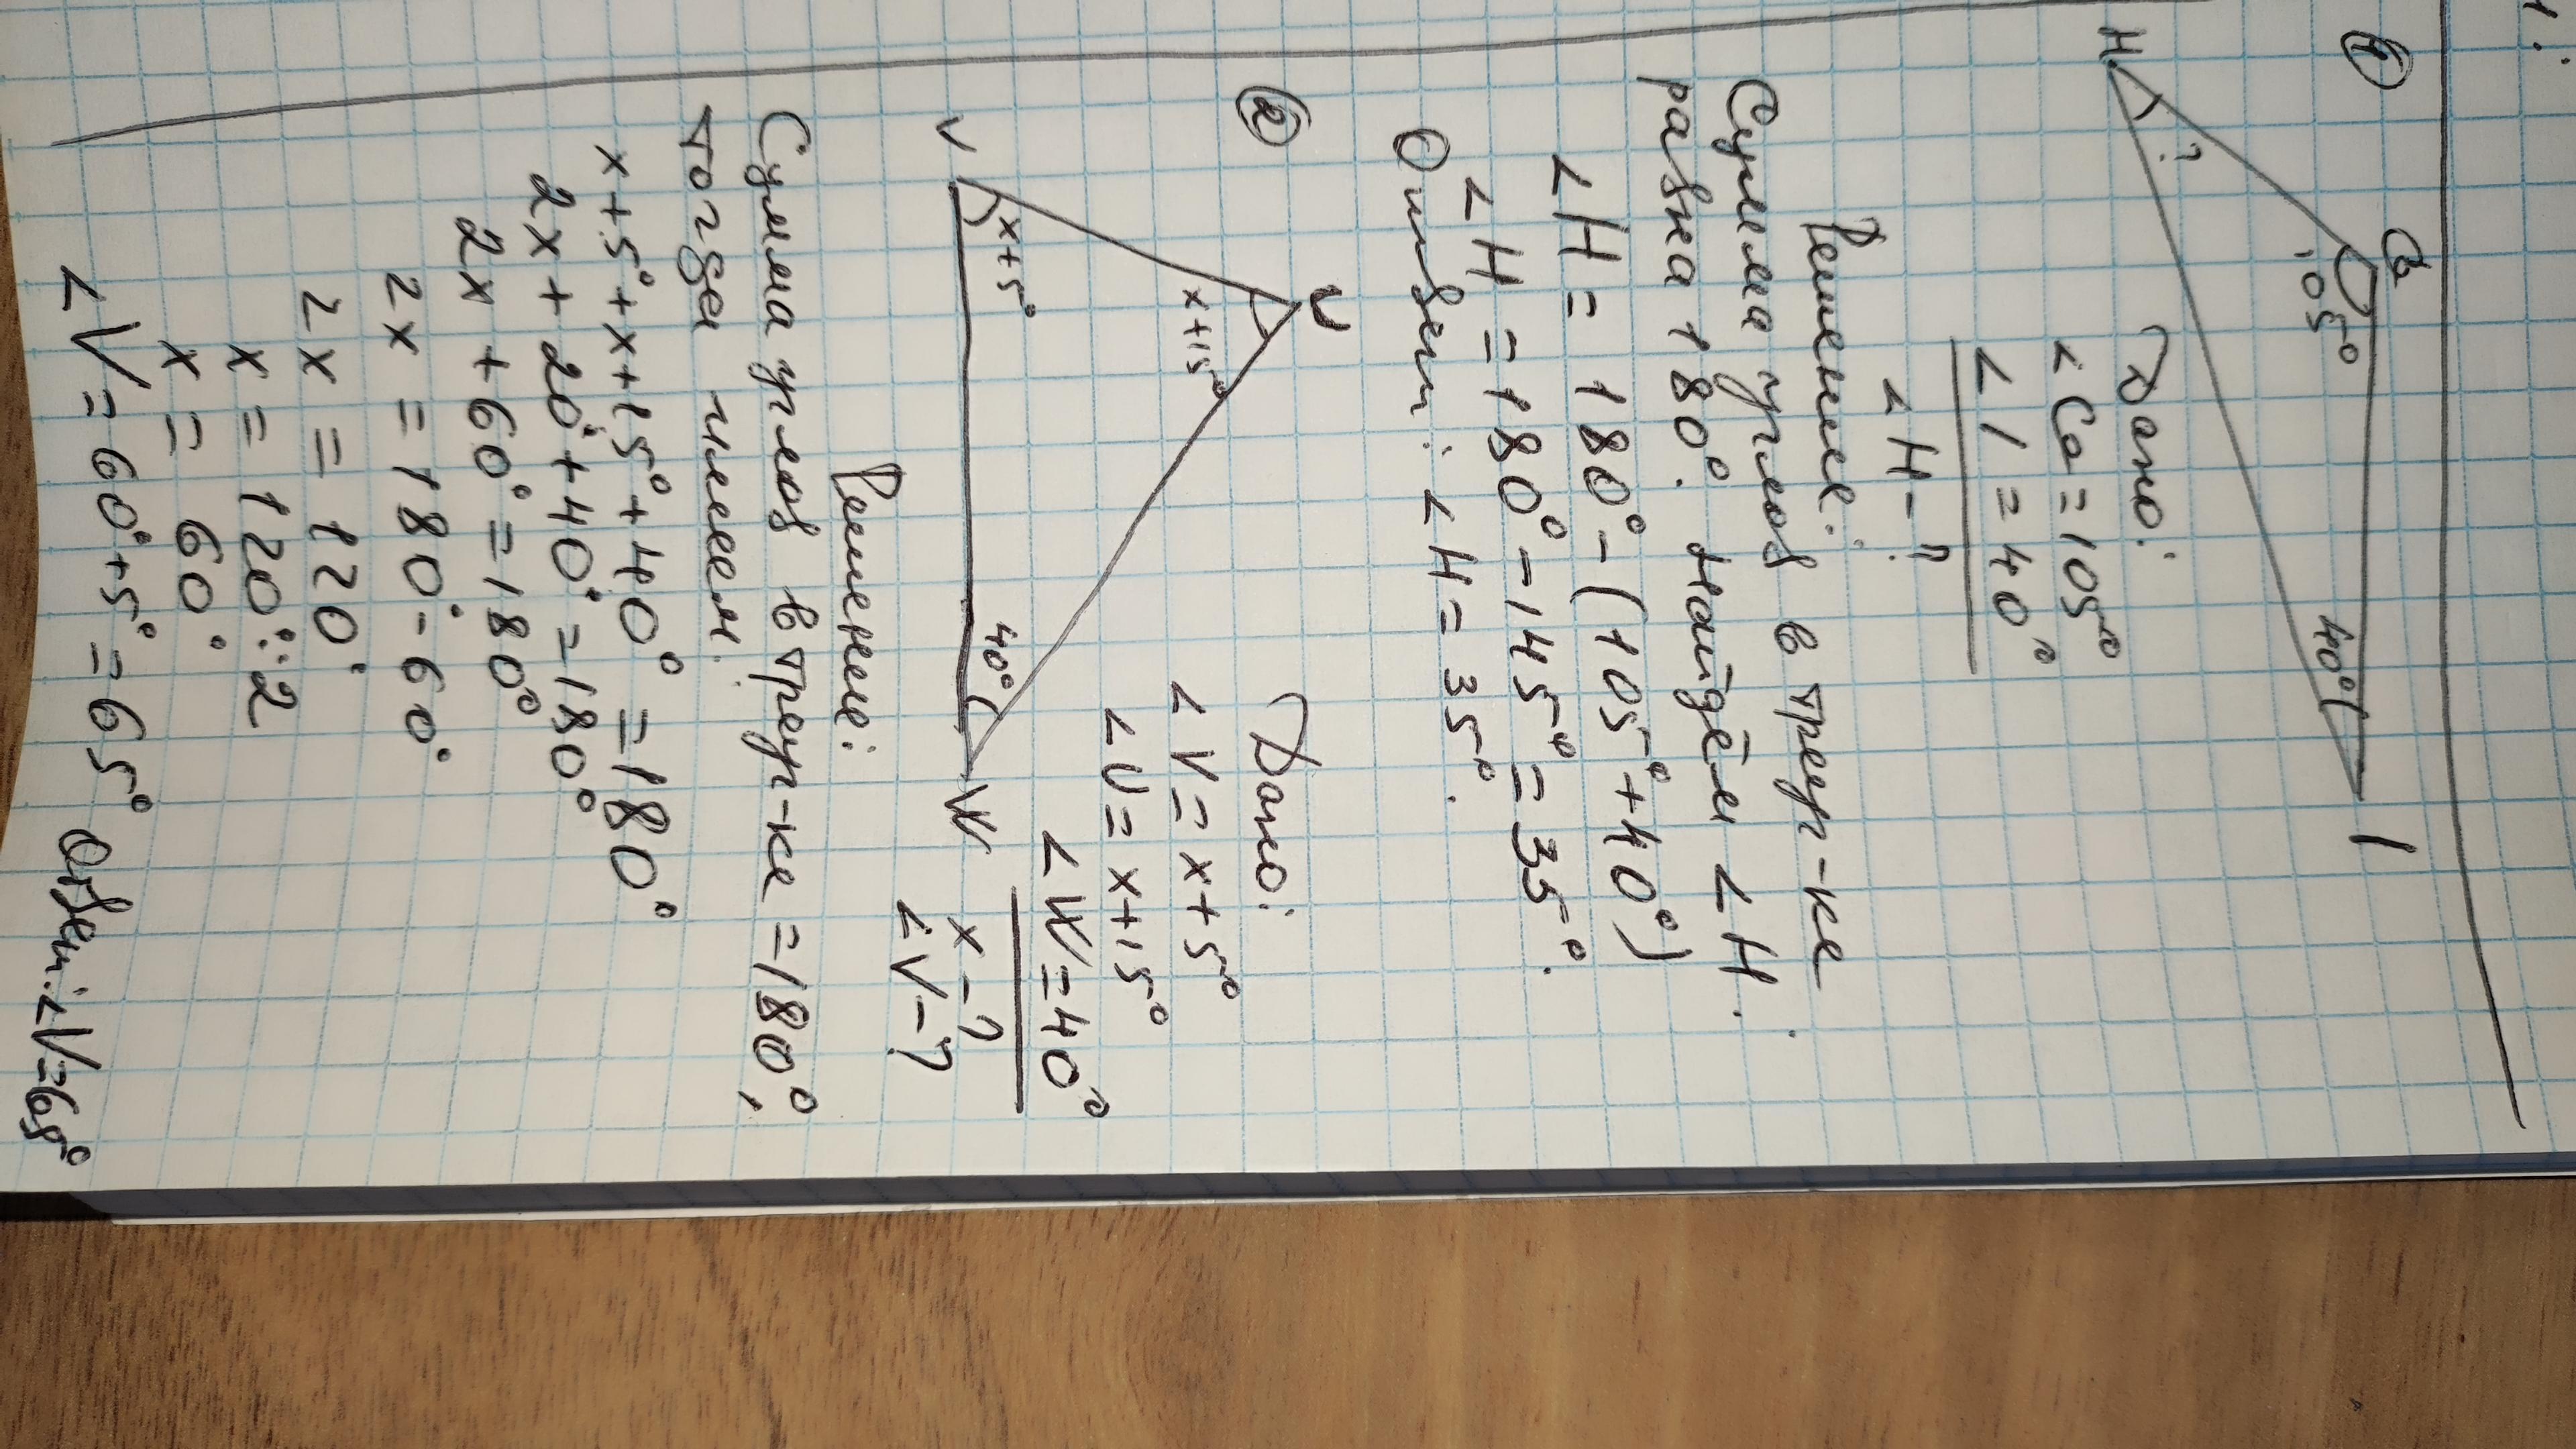 ①
H
?
G
105°
40°
I
Дано:
∠G=105°
∠I=40°
∠H-?
Решение:
Сумма углов в треуг-ке
равна 180°. Найдём ∠H:
∠H=180°-(105°+40°)
∠H=180°-145°=35°.
Ответ: ∠H=35°.
②
V
x+5°
U
x+15°
40°
W
Дано:
∠V=x+5°
∠U=x+15°
∠W=40°
x-?
∠V-?
Решение:
Сумма углов в треуг-ке=180°,
тогда имеем:
x+5°+x+15°+40°=180°
2x+20°+40°=180°
2x+60°=180°
2x=180°-60°
2x=120°
x=120°:2
x=60°
∠V=60°+5°=65° Ответ: ∠V=65°